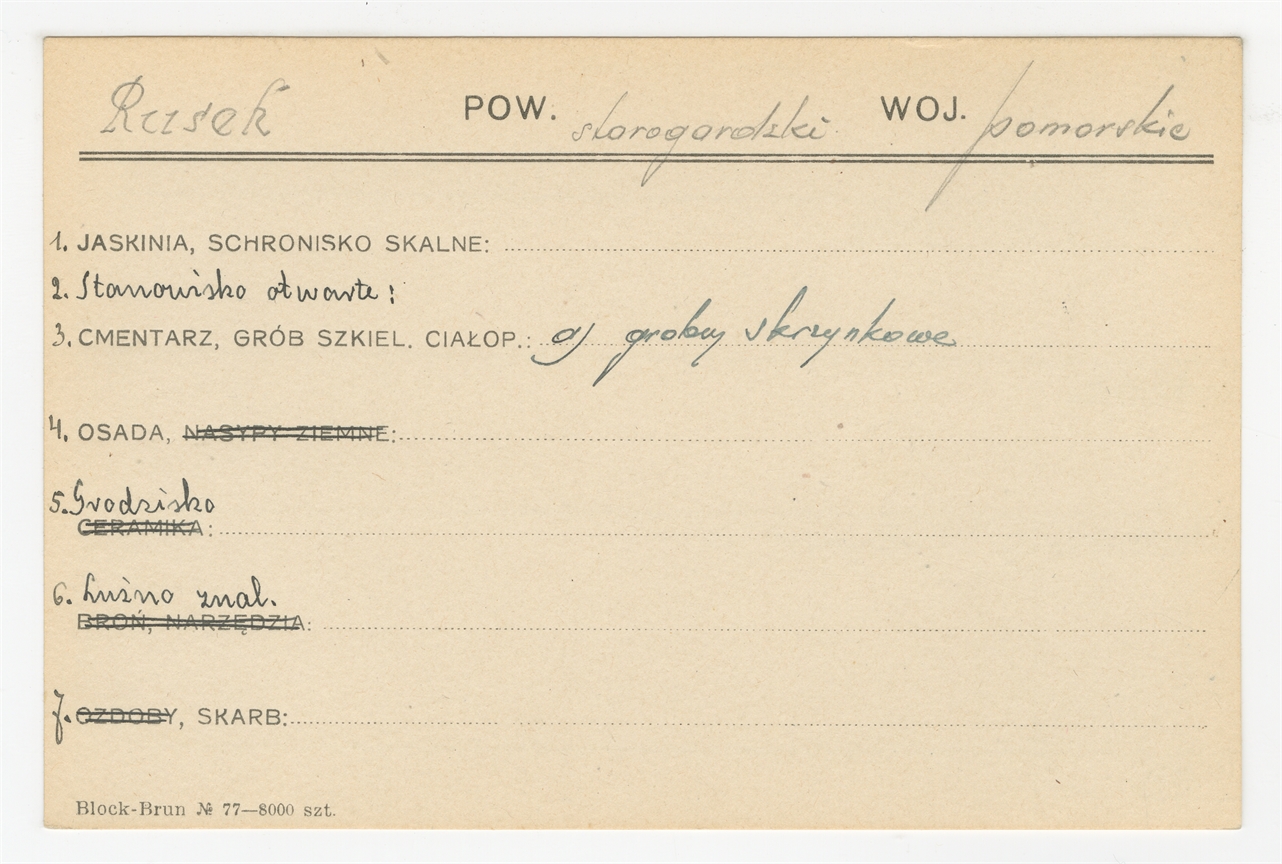 Rusek POW. starogardzki WOJ. pomorskie
1. JASKINIA, SCHRONISKO SKALNE:
2. Stanowisko otwarte:
3. CMENTARZ, GRÓB SZKIEL. CIAŁOP.: a) groby skrzynkowe
4. OSADA, NASYPY ZIEMNE:
5. Grodzisko
CERAMIKA:
6. Luźno znal.
BROŃ, NARZĘDZIA:
7. OZDOBY, SKARB:
Block-Brun № 77—8000 szt.